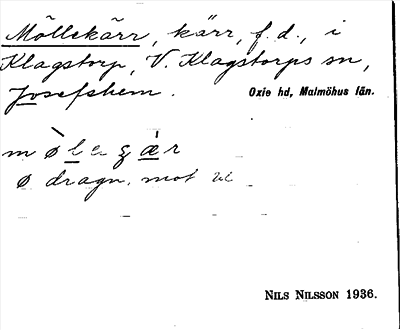 Möllekärr, kärr, f.d., i
Klagstorp, V. Klagstorps sn,
Josefshem. Oxie hd, Malmöhus län.
mø̀legǽr
ø dragn. mot
NILS NILSSON 1936.